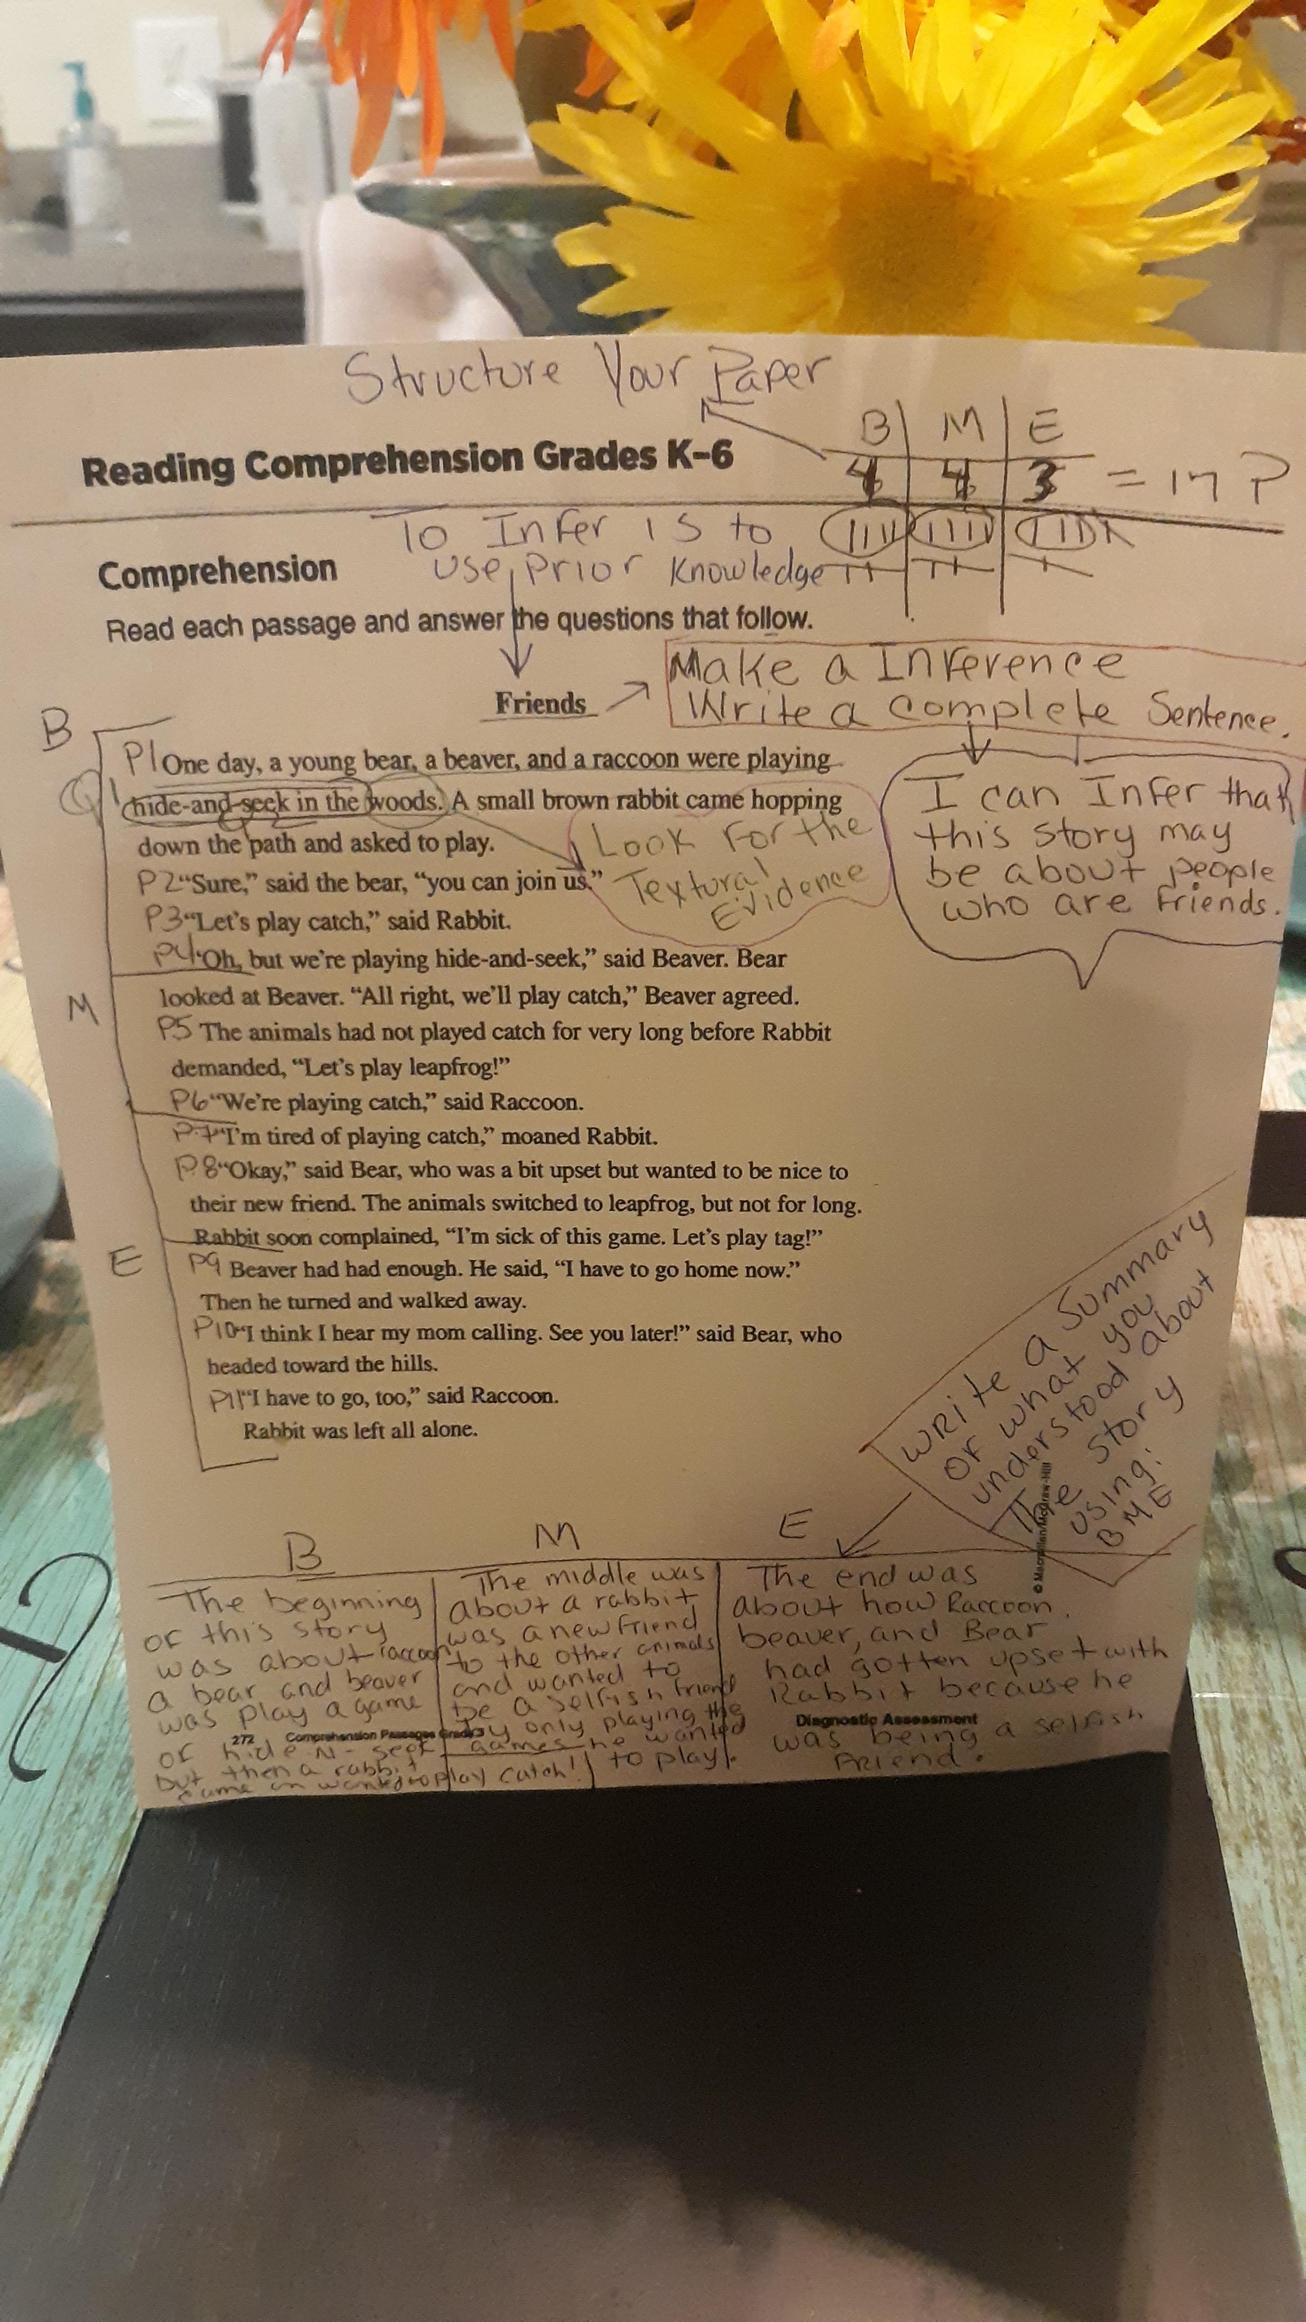 Structure Your Paper
B M E
Reading Comprehension Grades K–6
4 4 3 = 17 P
To Infer is to
use prior knowledge
Comprehension
Read each passage and answer the questions that follow.
Make a Inference
Write a complete Sentence.
Friends
B
P1 One day, a young bear, a beaver, and a raccoon were playing
Q1 hide-and-seek in the woods. A small brown rabbit came hopping
down the path and asked to play.
P2 “Sure,” said the bear, “you can join us.”
P3 “Let’s play catch,” said Rabbit.
Look For the
Textural
Evidence
I can Infer that
this story may
be about people
who are friends.
P4 “Oh, but we’re playing hide-and-seek,” said Beaver. Bear
M
looked at Beaver. “All right, we’ll play catch,” Beaver agreed.
P5 The animals had not played catch for very long before Rabbit
demanded, “Let’s play leapfrog!”
P6 “We’re playing catch,” said Raccoon.
P7 “I’m tired of playing catch,” moaned Rabbit.
P8 “Okay,” said Bear, who was a bit upset but wanted to be nice to
their new friend. The animals switched to leapfrog, but not for long.
Rabbit soon complained, “I’m sick of this game. Let’s play tag!”
E
P9 Beaver had had enough. He said, “I have to go home now.”
Then he turned and walked away.
P10 “I think I hear my mom calling. See you later!” said Bear, who
headed toward the hills.
P11 “I have to go, too,” said Raccoon.
Rabbit was left all alone.
Write a Summary
of what you
understood about
The story
using:
B M E
© Macmillan/McGraw-Hill
B
The beginning
of this story
was about raccoon
a bear and beaver
was play a game
of hide N- seek
but then a rabbit
came an wanted to play catch!
M
The middle was
about a rabbit
was a new friend
to the other animals
and wanted to
be a selfish friend
by only playing the
games he wanted
to play.
E
The end was
about how Raccoon,
beaver, and Bear
had gotten upset with
Rabbit because he
was being a selfish
Friend.
272 Comprehension Passages Grade 3
Diagnostic Assessment